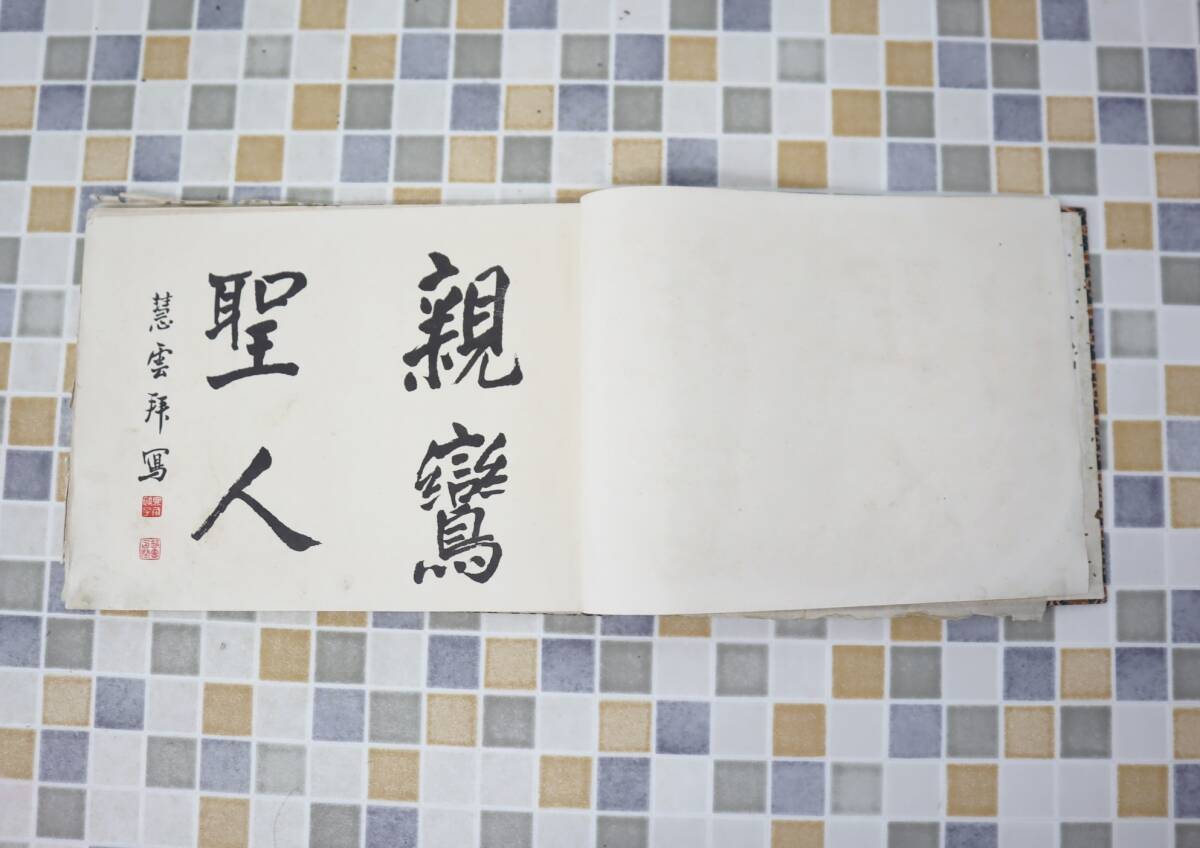 親鸞
聖人
慧雲拜寫